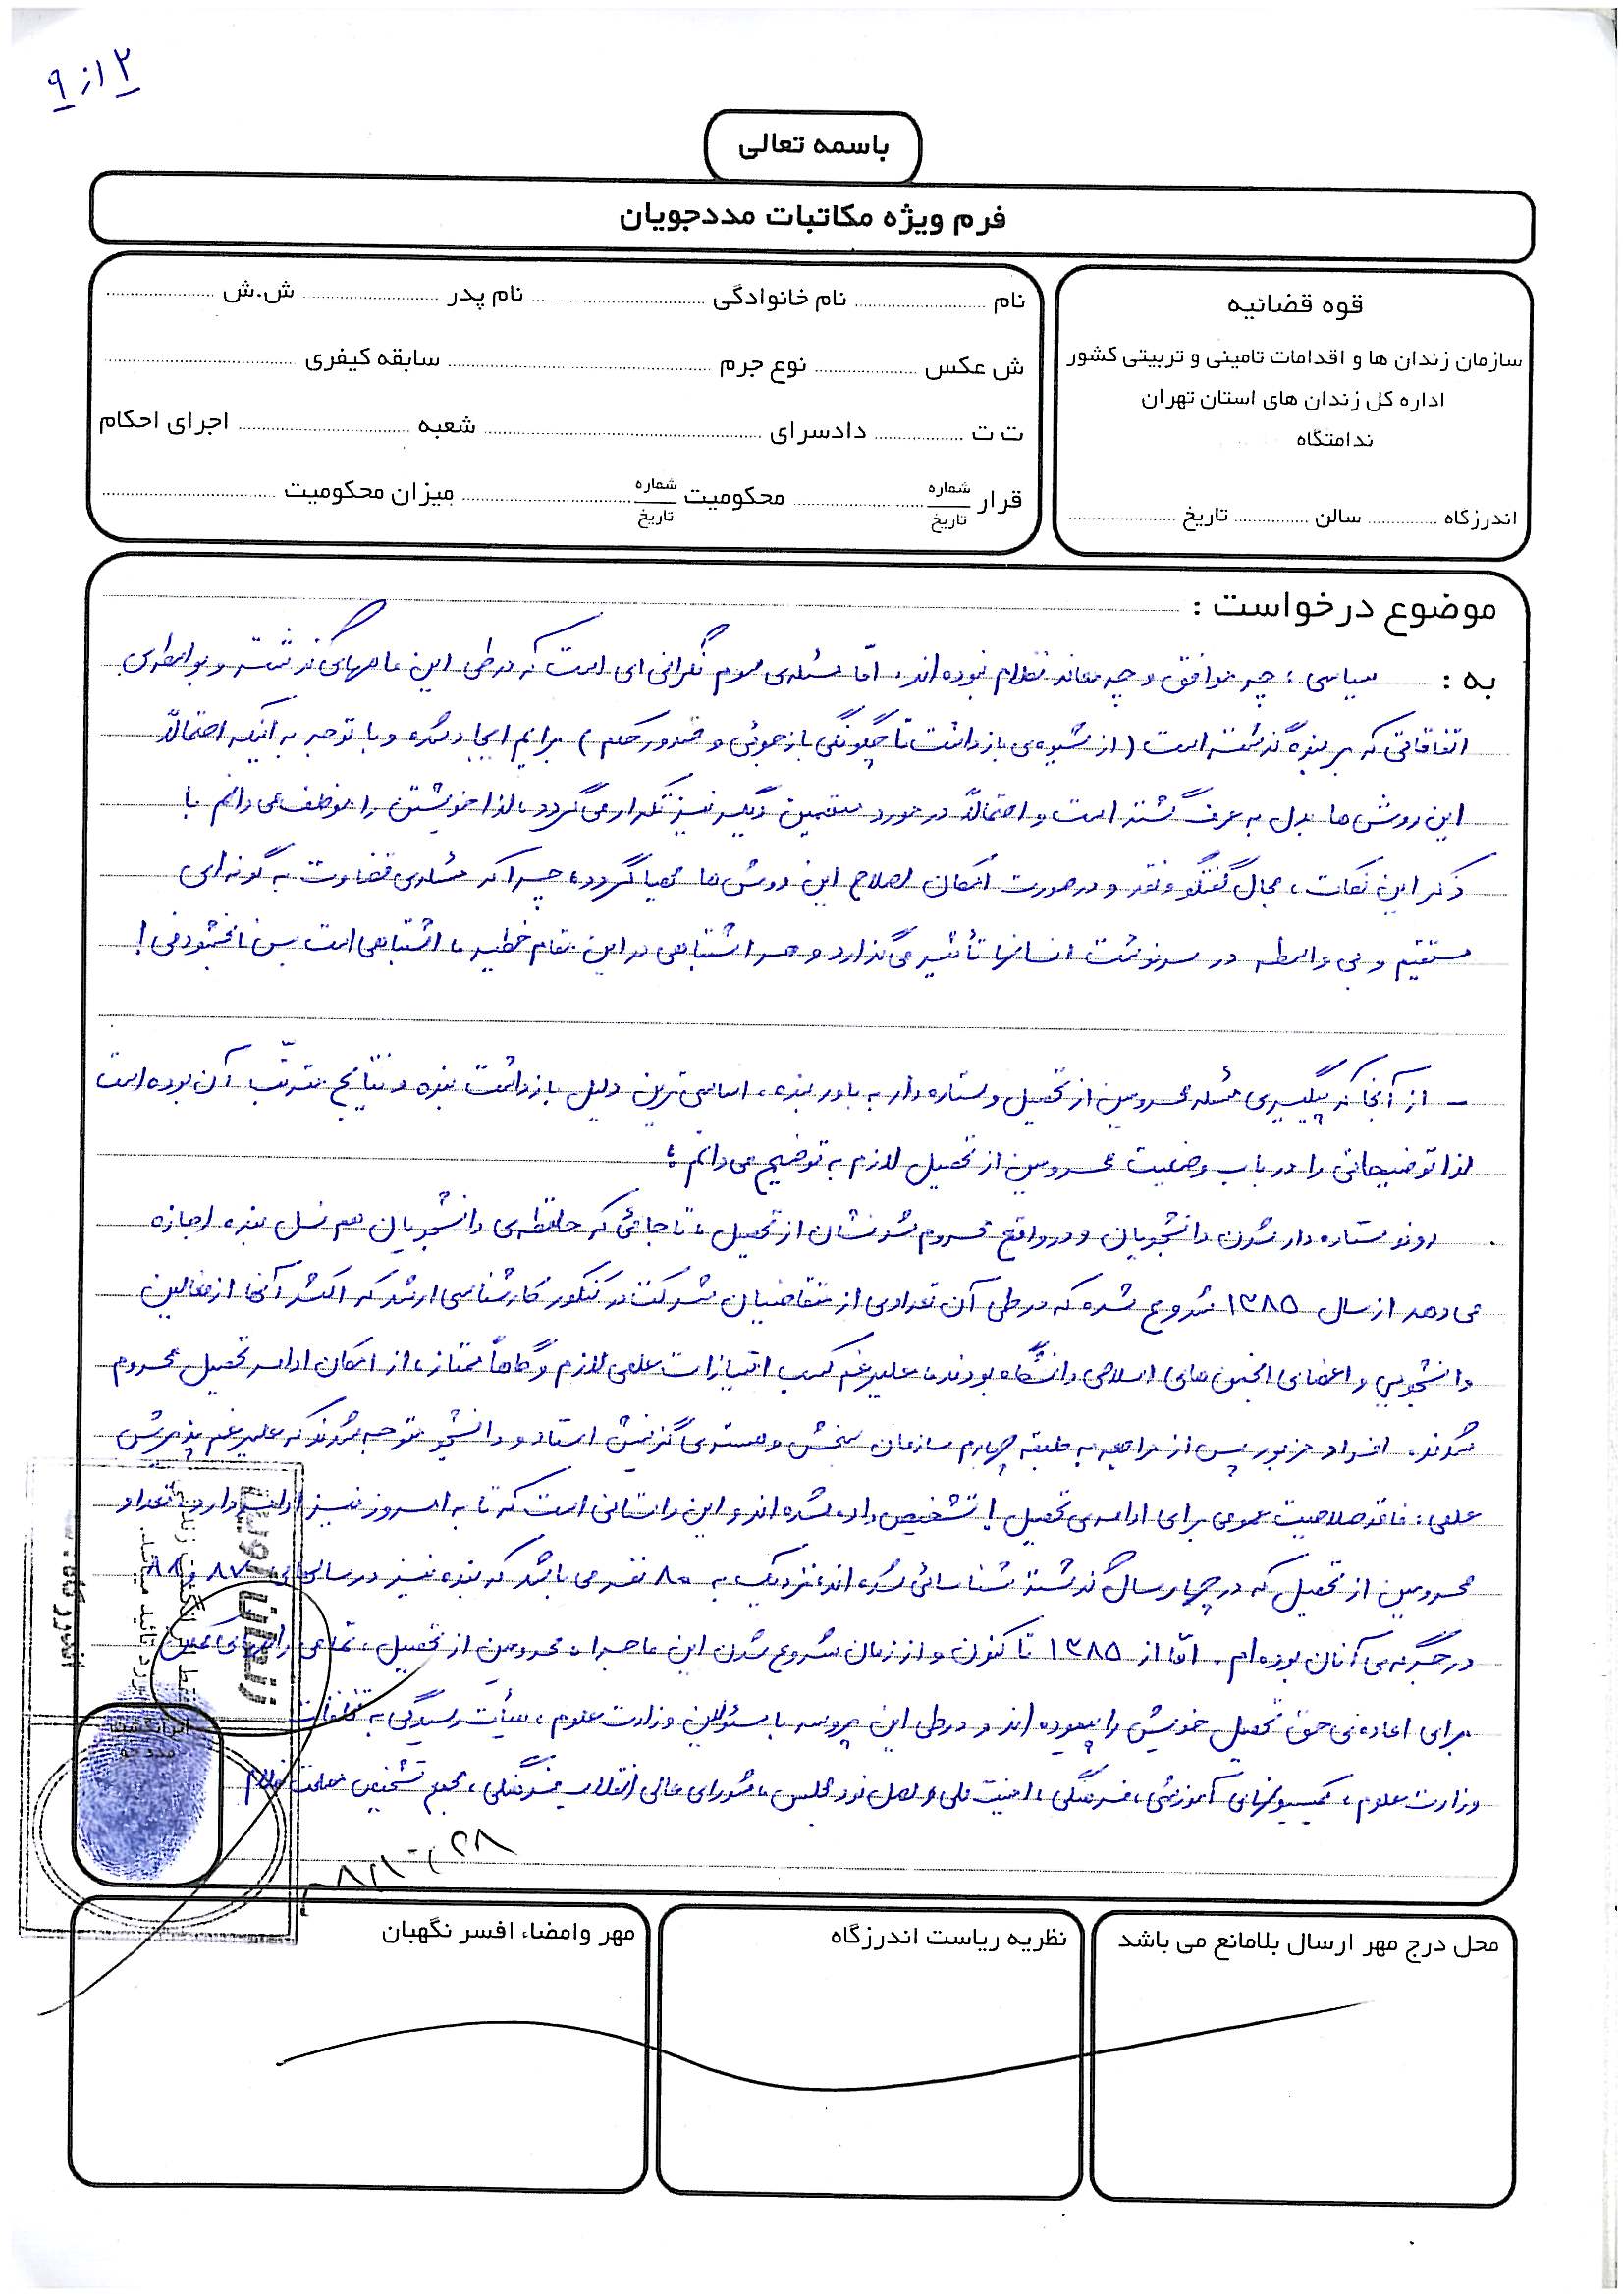 ۲ از ۹
باسمه تعالی
فرم ویژه مکاتبات مددجویان
قوه قضائیه
سازمان زندان ها و اقدامات تامینی و تربیتی کشور
اداره کل زندان های استان تهران
ندامتگاه
اندرزگاه .............. سالن .............. تاریخ ..............
نام .............. نام خانوادگی .............. نام پدر .............. ش.ش ..............
ش عکس .............. نوع جرم .............. سابقه کیفری ..............
ت ت .............. دادسرای .............. شعبه .............. اجرای احکام
قرار شماره تاریخ .............. محکومیت شماره تاریخ .............. میزان محکومیت ..............
موضوع درخواست :
به : سیاسی، چه موافق و چه معاند نظام نبوده‌اند. امّا مسئله‌ی سوم نگرانی‌ای است که در طی این ماههای گذشته و بواسطه‌ی
اتفاقاتی که بر بنده گذشته است (از شیوه‌ی بازداشت تا چگونگی بازجوئی و صدور حکم) برایم ایجاد شده و با توجه به اینکه احتمالاً
این روش ها بدل به عرف گشته است و احتمالاً در مورد متهمین دیگر نیز تکرار می گردد، لذا خویشتن را موظف می دانم با
ذکر این نکات، مجال گفتگو و نقد و در صورت امکان اصلاح این روش ها مهیا گردد، چرا که مسئله‌ی قضاوت به گونه‌ای
مستقیم و بی واسطه در سرنوشت انسانها تأثیر می گذارد و هر اشتباهی در این مقام خطیر، اشتباهی است بس نابخشودنی!
- از آنجا که پیگیری مسئله محرومین از تحصیل و ستاره دار به باور بنده، اساسی ترین دلیل بازداشت بنده و نتایج مترتّب آن بوده است
لذا توضیحاتی را در باب وضعیت محرومین از تحصیل لازم به توضیح می دانم:
روند ستاره دار شدن دانشجویان و در واقع محروم شدنشان از تحصیل، تا جائی که حافظه‌ی دانشجویان هم نسل بنده اجازه
می دهد از سال ۱۳۸۵ شروع شده که در طی آن تعدادی از متقاضیان شرکت در کنکور کارشناسی ارشد که اکثر آنها از فعالین
دانشجویی و اعضای انجمن های اسلامی دانشگاه بودند، علیرغم کسب امتیازات علمی لازم و گاهاً ممتاز، از امکان ادامه تحصیل محروم
شدند. افراد مزبور پس از مراجعه به طبقه چهارم سازمان سنجش و هسته‌ی گزینش استاد و دانشجو متوجه شدند که علیرغم پذیرش
علمی، فاقد صلاحیت عمومی برای ادامه‌ی تحصیل! تشخیص داده شده اند و این داستانی است که تا به امروز نیز ادامه دارد. تعداد
محرومین از تحصیل که در چهار سال گذشته شناسائی شده اند، نزدیک به ۸۰ نفر می باشد که بنده نیز در سالهای ۸۷ و ۸۸
در جرگه‌ی آنان بوده ام. امّا از ۱۳۸۵ تا کنون و از زمان شروع شدن این ماجرا، محرومین از تحصیل، تمامی راههای ممکن
برای اعاده‌ی حق تحصیل خویش را پیموده اند و در طی این پروسه با مسئولین وزارت علوم، هیأت رسیدگی به تخلفات
وزارت علوم، کمیسیونهای آموزشی، فرهنگی، امنیت ملی و اصل نود مجلس، شورای عالی انقلاب فرهنگی، مجمع تشخیص مصلحت نظام
زندان اوین
اثر انگشت
مددجو
محل درج مهر ارسال بلامانع می باشد
نظریه ریاست اندرزگاه
مهر وامضاء افسر نگهبان